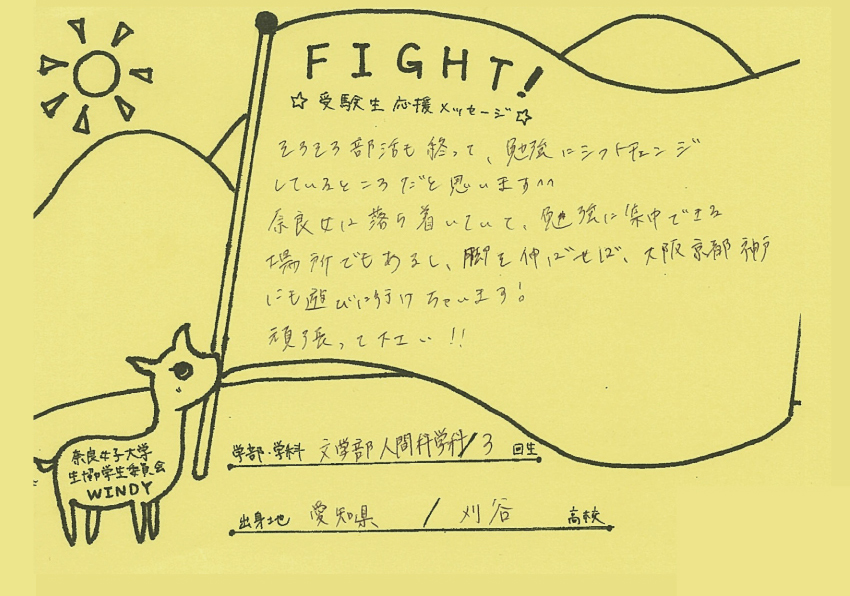 FIGHT!
☆受験生応援メッセージ☆
そろそろ部活も終って、勉強にシフトチェンジ
しているところだと思います^^
奈良女は落ち着いていて、勉強に集中できる
場所でもあるし、脚を伸ばせば、大阪京都神戸
にも遊びに行けちゃいます!
頑張って下さい!!
学部・学科 文学部人間科学科/3 回生
奈良女子大学
生協学生委員会
WINDY
出身地 愛知県 / 刈谷 高校